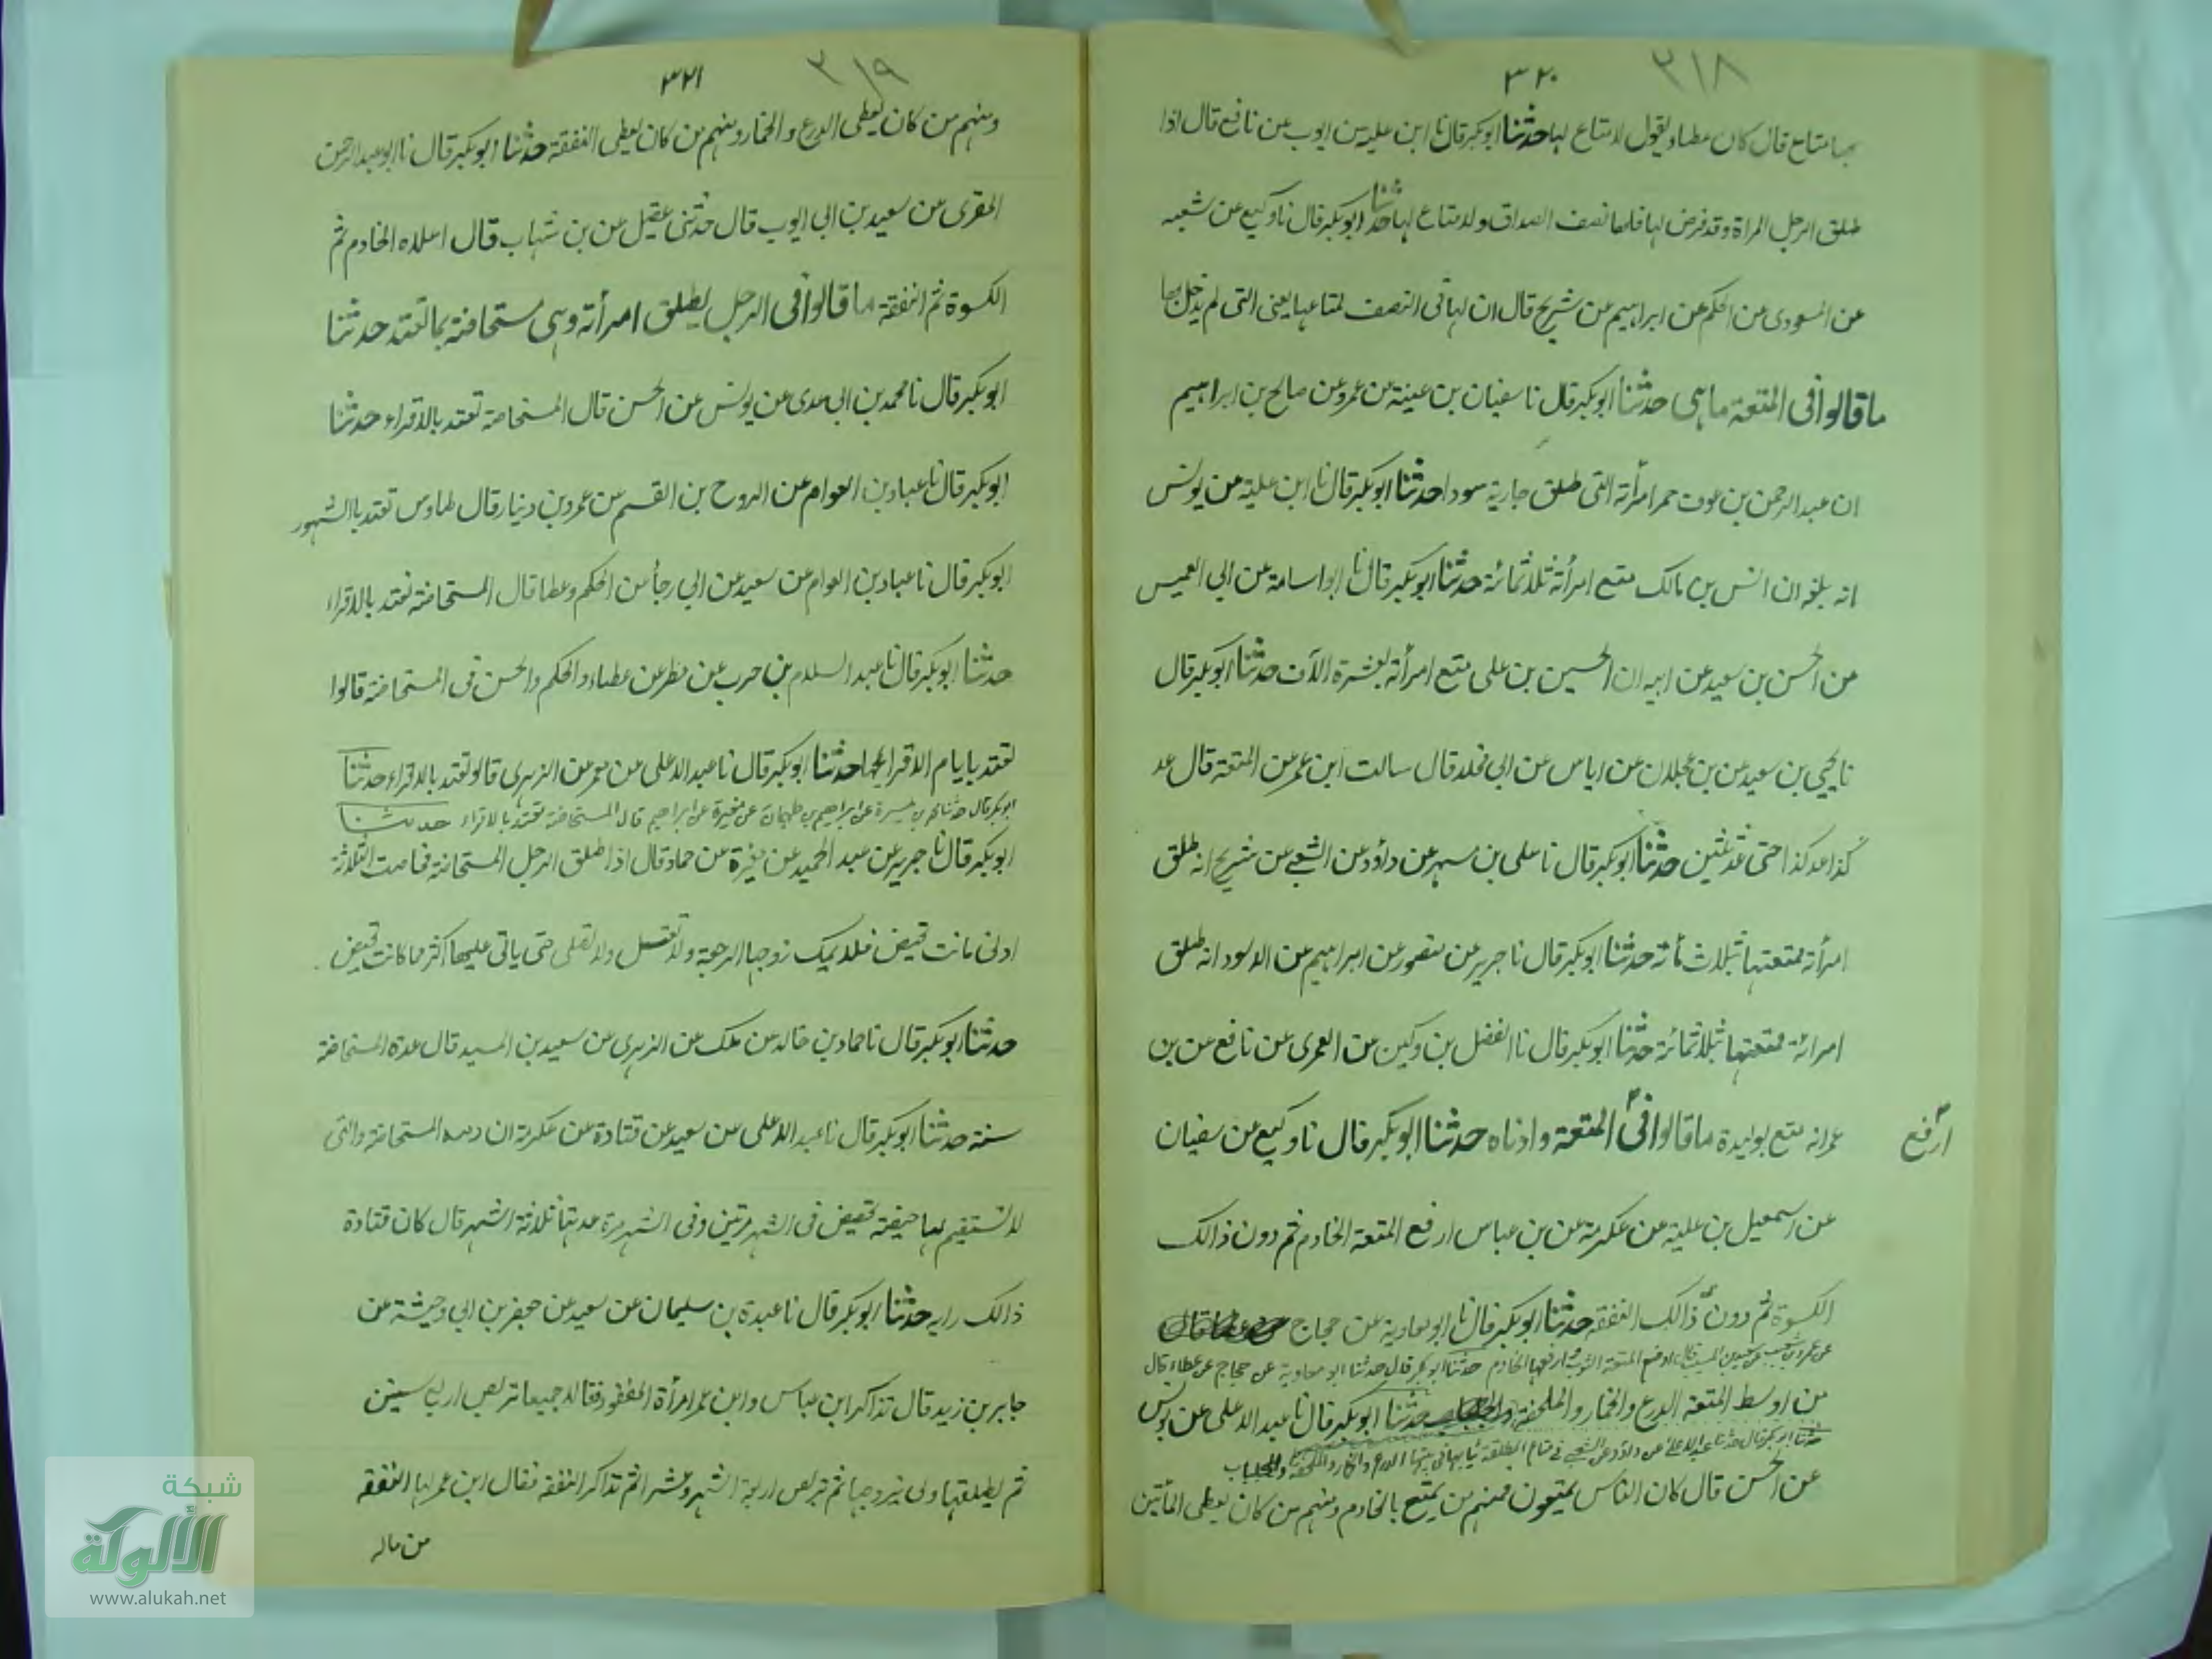 ٣٢٠
٣١٨
بها متاع قال كان عطاء يقول لا متاع لها حدثنا ابوبكر قال نا ابن علية عن ايوب عن نافع قال اذا
طلق الرجل المراة وقد فرض لها فلها نصف الصداق ولا متاع لها حدثنا ابوبكر قال نا وكيع عن شعبه
عن المسعودى عن الحكم عن ابراهيم عن شريح قال ان لها فى النصف لمتاعها يعنى التى لم يدخل بها
ما قالوا فى المتعة ماهى حدثنا ابوبكر قال نا سفيان بن عينة عن عمرو عن صالح بن ابراهيم
ان عبد الرحمن بن عوف حمر امرأته التى طلق جارية سودا حدثنا ابوبكر قال نا ابن علية عن يونس
انه بلغه ان انس بن مالك متع امرأته ثلاثمائة حدثنا ابوبكر قال نا ابو اسامة عن ابى العميس
عن الحسن بن سعيد عن ابيه ان الحسين بن على متع امرأته بعشرة الآف حدثنا ابوبكر قال
نا يحيى بن سعيد عن بن عجلان عن اياس عن ابى مخلد قال سالت ابن عمر عن المتعة قال عد
كذا عد كذا حتى عد ثلثين حدثنا ابوبكر قال نا على بن مسهر عن داؤد عن الشعبى عن شريح انه طلق
امرأته فمتعتها بثلاث مائة حدثنا ابوبكر قال نا جرير عن منصور عن ابراهيم عن الاسود انه طلق
امرأته فمتعها بثلاثمائة حدثنا ابوبكر قال نا الفضل بن دكين عن العمرى عن نافع عن بن
عمر انه متع بوليدة ما قالوا فى المتعة وادناه حدثنا ابوبكر قال نا وكيع عن سفيان
ارفع
عن اسمعيل بن علية عن عكرمة عن بن عباس ارفع المتعة الخادم ثم دون ذالك
الكسوة ثم دون ذالك النفقة حدثنا ابوبكر قال نا ابو معاوية عن حجاج
عن عمرو بن شعيب عن سعيد بن المسيب قال اوضع المتعة الثوب وارفعها الخادم حدثنا ابو بكر قال حدثنا ابو معاوية عن حجاج عن عطاء قال
من اوسط المتعة الدرع والخمار والملحفة حدثنا ابوبكر قال نا عبد الاعلى عن يونس
حدثنا ابو بكر قال حدثنا عبد الاعلى عن داؤد عن الشعبي في متاع المطلقة ثيابها في بيتها الدرع والخمار والملحفة والجلباب
عن الحسن قال كان الناس يمتعون فمنهم من يمتع بالخادم ومنهم من كان يعطى المأتين
٣٢١
٣١٩
ومنهم من كان يعطى الدرع والخمار ومنهم من كان يعطى النفقة حدثنا ابوبكر قال نا ابو عبد الرحمن
المقرى عن سعيد بن ابى ايوب قال حدثنى عقيل عن بن شهاب قال اعلاه الخادم ثم
الكسوة ثم النفقة ما قالوا فى الرجل يطلق امرأته وهى مستحاضة بما تعتد حدثنا
ابوبكر قال نا محمد بن ابى عدى عن يونس عن الحسن قال المستحاضة تعتد بالاقراء حدثنا
ابوبكر قال نا عباد بن العوام عن الروح بن القسم عن عمرو بن دينار قال طاوس تعتد باالشهور
ابوبكر قال نا عباد بن العوام عن سعيد عن ابى رجأ عن الحكم وعطا قال المستحاضة تعتد بالاقراء
حدثنا ابوبكر قال نا عبد السلام بن حرب عن مطر عن عطاء والحكم والحسن فى المستحاضة قالوا
تعتد بايام الاقراءها حدثنا ابوبكر قال نا عبد الاعلى عن معمر عن الزهرى قالو تعتد بالاقراء حدثنا
ابو بكر قال حدثنا عمر بن ميسرة عن ابراهيم بن طهمان عن مغيرة عن ابراهيم قال المستحاضة تعتد بالاقراء حدثنا
ابوبكر قال نا جرير عن عبد الحميد عن مغيرة عن حماد قال اذا طلق الرجل المستحاضة فحاضت الثلاثة
ادنى ما كانت تحيض فلا يملك زوجها الرجعة ولا تغتسل ولا تصلى حتى ياتى عليها اكثر ما كانت تحيض
حدثنا ابوبكر قال نا حماد بن خالد عن ملك عن الزهرى عن سعيد بن المسيد قال عدة المستحاضة
سنة حدثنا ابوبكر قال نا عبد الاعلى عن سعيد عن قتادة عن عكرمة ان المستحاضة والتى
لا تستقيم لها حيضة تحيض فى الشهر مرتين وفى الشهر مرة عدتها ثلاثة اشهر قال كان قتادة
ذالك رايه حدثنا ابوبكر قال نا عبدة بن سليمان عن سعيد عن جعفر بن ابى وحيشة عن
جابر بن زيد قال تذاكر ابن عباس وابن عمر امرأة المفقود فقالا جميعا تربص اربع سنين
ثم يطلقها ولى زوجها ثم تربص اربعة اشهر وعشرا ثم تذاكر النفقة فقال ابن عمر لها النفقة
من ماله
شبكة
الألوكة
www.alukah.net